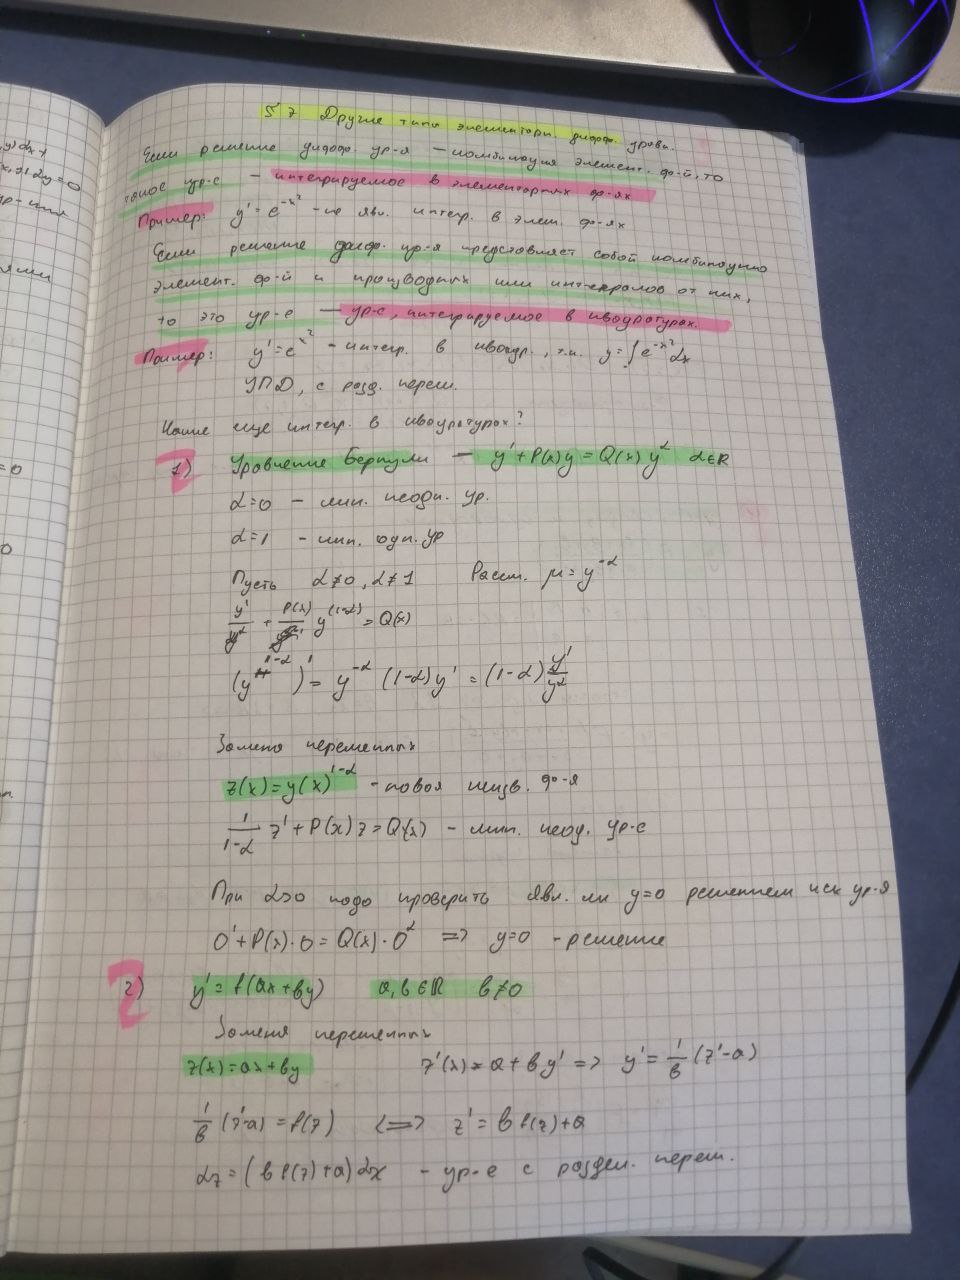 § 7 Другие типы элементарн. дифф. уравн.
Если решение дифф. ур-я – комбинация элемент. ф-й, то
такое ур-е – интегрируемое в элементарных ф-ях
Пример: y' = e^{-x^2} – не явл. интегр. в элем. ф-ях
Если решение дифф. ур-я представляет собой комбинацию
элемент. ф-й и производных или интегралов от них,
то это ур-е – ур-е, интегрируемое в квадратурах.
Пример: y' = e^{x^2} – интегр. в квадр., т.к. y = ∫ e^{-x^2} dx
УПД, с разд. перем.
Какие еще интегр. в квадратурах?
1) Уравнение Бернули – y' + P(x)y = Q(x) y^α α∈R
α=0 – лин. неодн. ур.
α=1 – лин. одн. ур
Пусть α≠0, α≠1 Рассм. μ = y^{-α}
y'/y^α + P(x) y^{(1-α)} = Q(x)
(y^{1-α})' = y^{-α} (1-α) y' = (1-α) y'/y^α
Замена переменных
z(x) = y(x)^{1-α} – новая неизв. ф-я
1/(1-α) z' + P(x) z = Q(x) – лин. неод. ур-е
При α>0 надо проверить явл. ли y=0 решением исх ур-я
0' + P(x)·0 = Q(x)·0^α => y=0 – решение
2) y' = f(ax+by) a,b∈R b≠0
Замена переменных
z(x) = ax+by z'(x) = a + by' => y' = 1/b (z'-a)
1/b (z'-a) = f(z) <=> z' = b f(z) + a
dz = (b f(z) + a) dx – ур-е с раздел. перем.